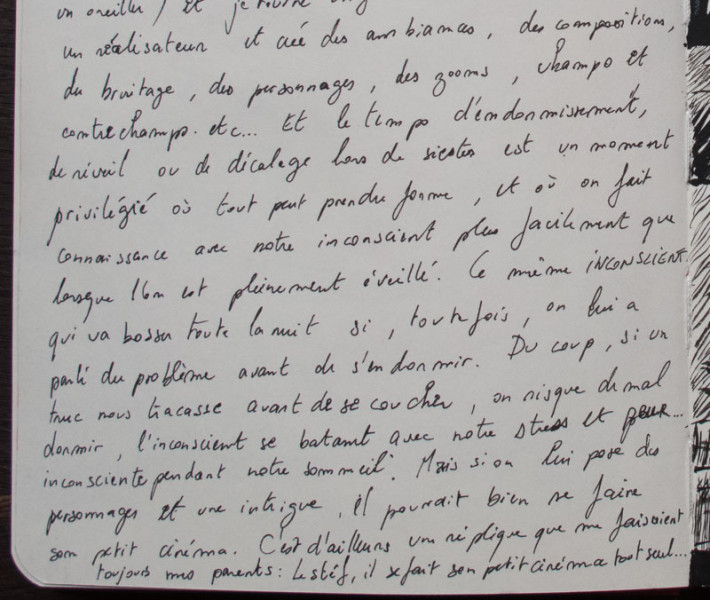 un oreiller / Et je tourne
un réalisateur et crée des ambiances, des compositions,
du bruitage, des personnages, des zooms, champs et
contrechamps. etc... Et le temps d'endormissement,
de réveil ou de décalage lors de siestes est un moment
privilégié où tout peut prendre forme, et où on fait
connaissance avec notre inconscient plus facilement que
lorsque l'on est pleinement éveillé. Ce même INCONSCIENT
qui va bosser toute la nuit si, toutefois, on lui a
parlé du problème avant de s'endormir. Du coup, si un
truc nous tracasse avant de se coucher, on risque de mal
dormir, l'inconscient se battant avec notre stress et peur...
inconsciente pendant notre sommeil. Mais si on lui pose des
personnages et une intrigue, il pourrait bien se faire
son petit cinéma. C'est d'ailleurs une réplique que me faisaient
toujours mes parents : Le stéf, il se fait son petit cinéma tout seul...